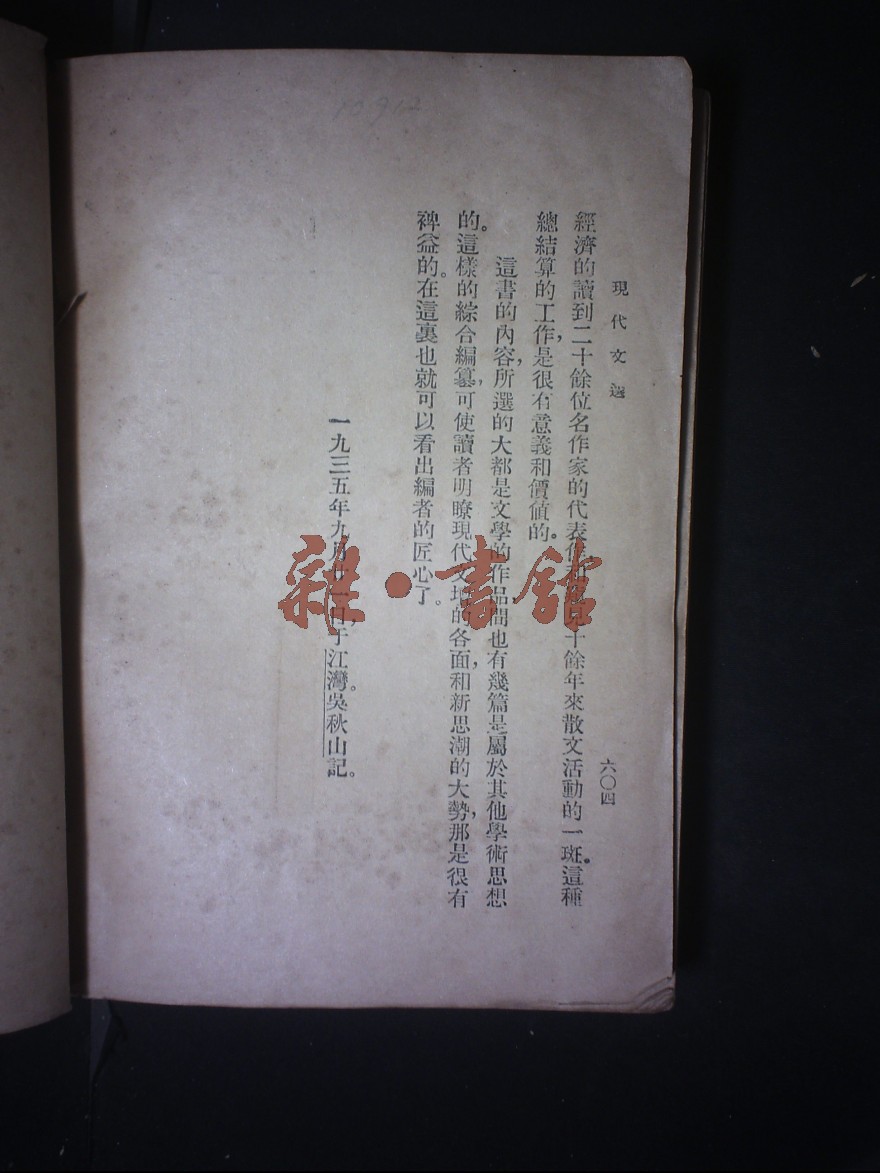 現代文選
六〇四
經濟的讀到二十餘位名作家的代表作和窺見十餘年來散文活動的一斑。這種
總結算的工作，是很有意義和價值的。
這書的內容，所選的大都是文學的作品間也有幾篇是屬於其他學術思想
的。這樣的綜合編纂，可使讀者明瞭現代文地的各面，和新思潮的大勢，那是很有
裨益的。在這裏也就可以看出編者的匠心了。
一九三五年九月廿一日，于江灣。吳秋山記。
雜·書館
10912